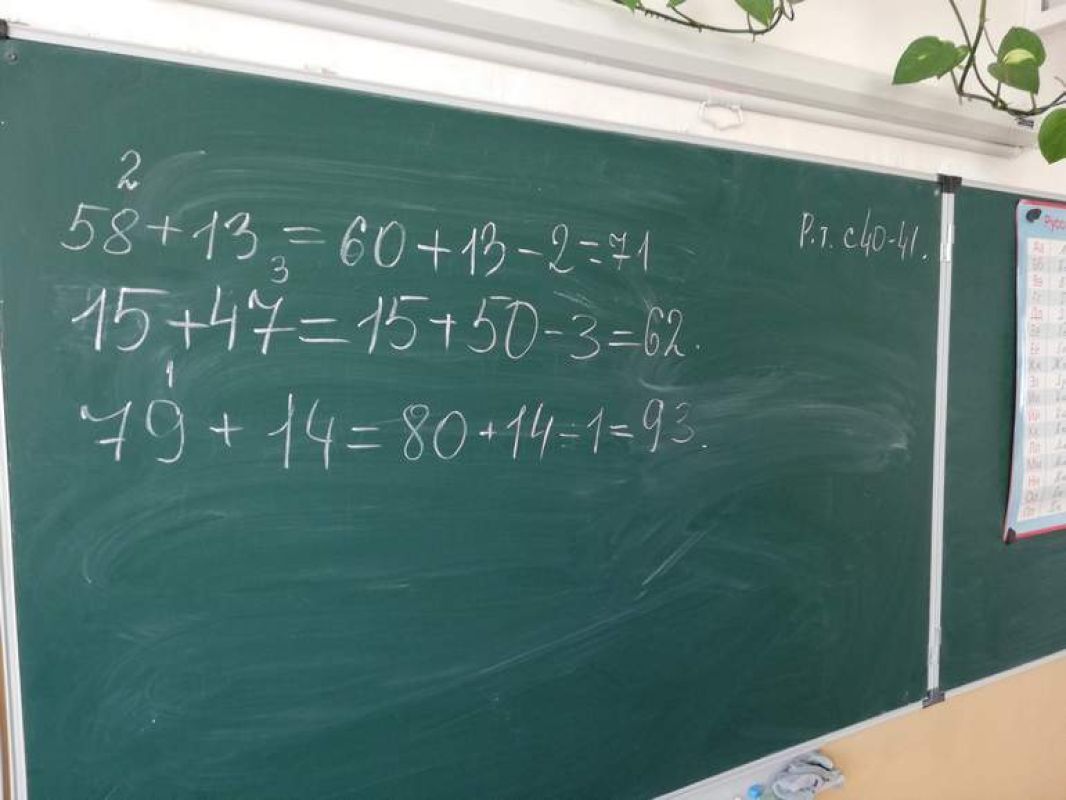 2
58+13=60+13-2=71
Р.т. с40-41.
3
15+47=15+50-3=62.
1
79+14=80+14-1=93.
Русс